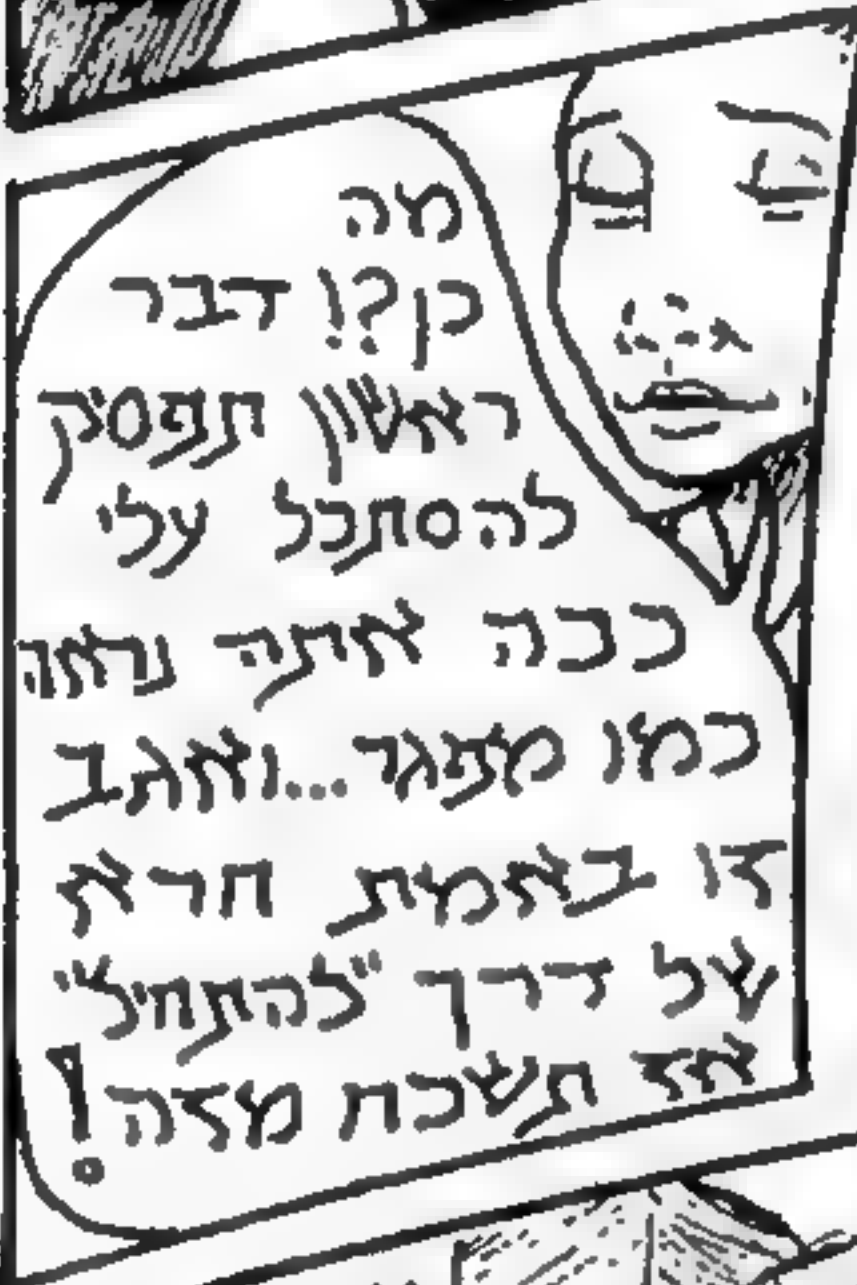 מה
כן?! דבר
ראשון תפסיק
להסתכל עלי
ככה אתה נראה
כמו מפגר...ואגב
זו באמת חרא
של דרך "להתחיל"
אז תשכח מזה!